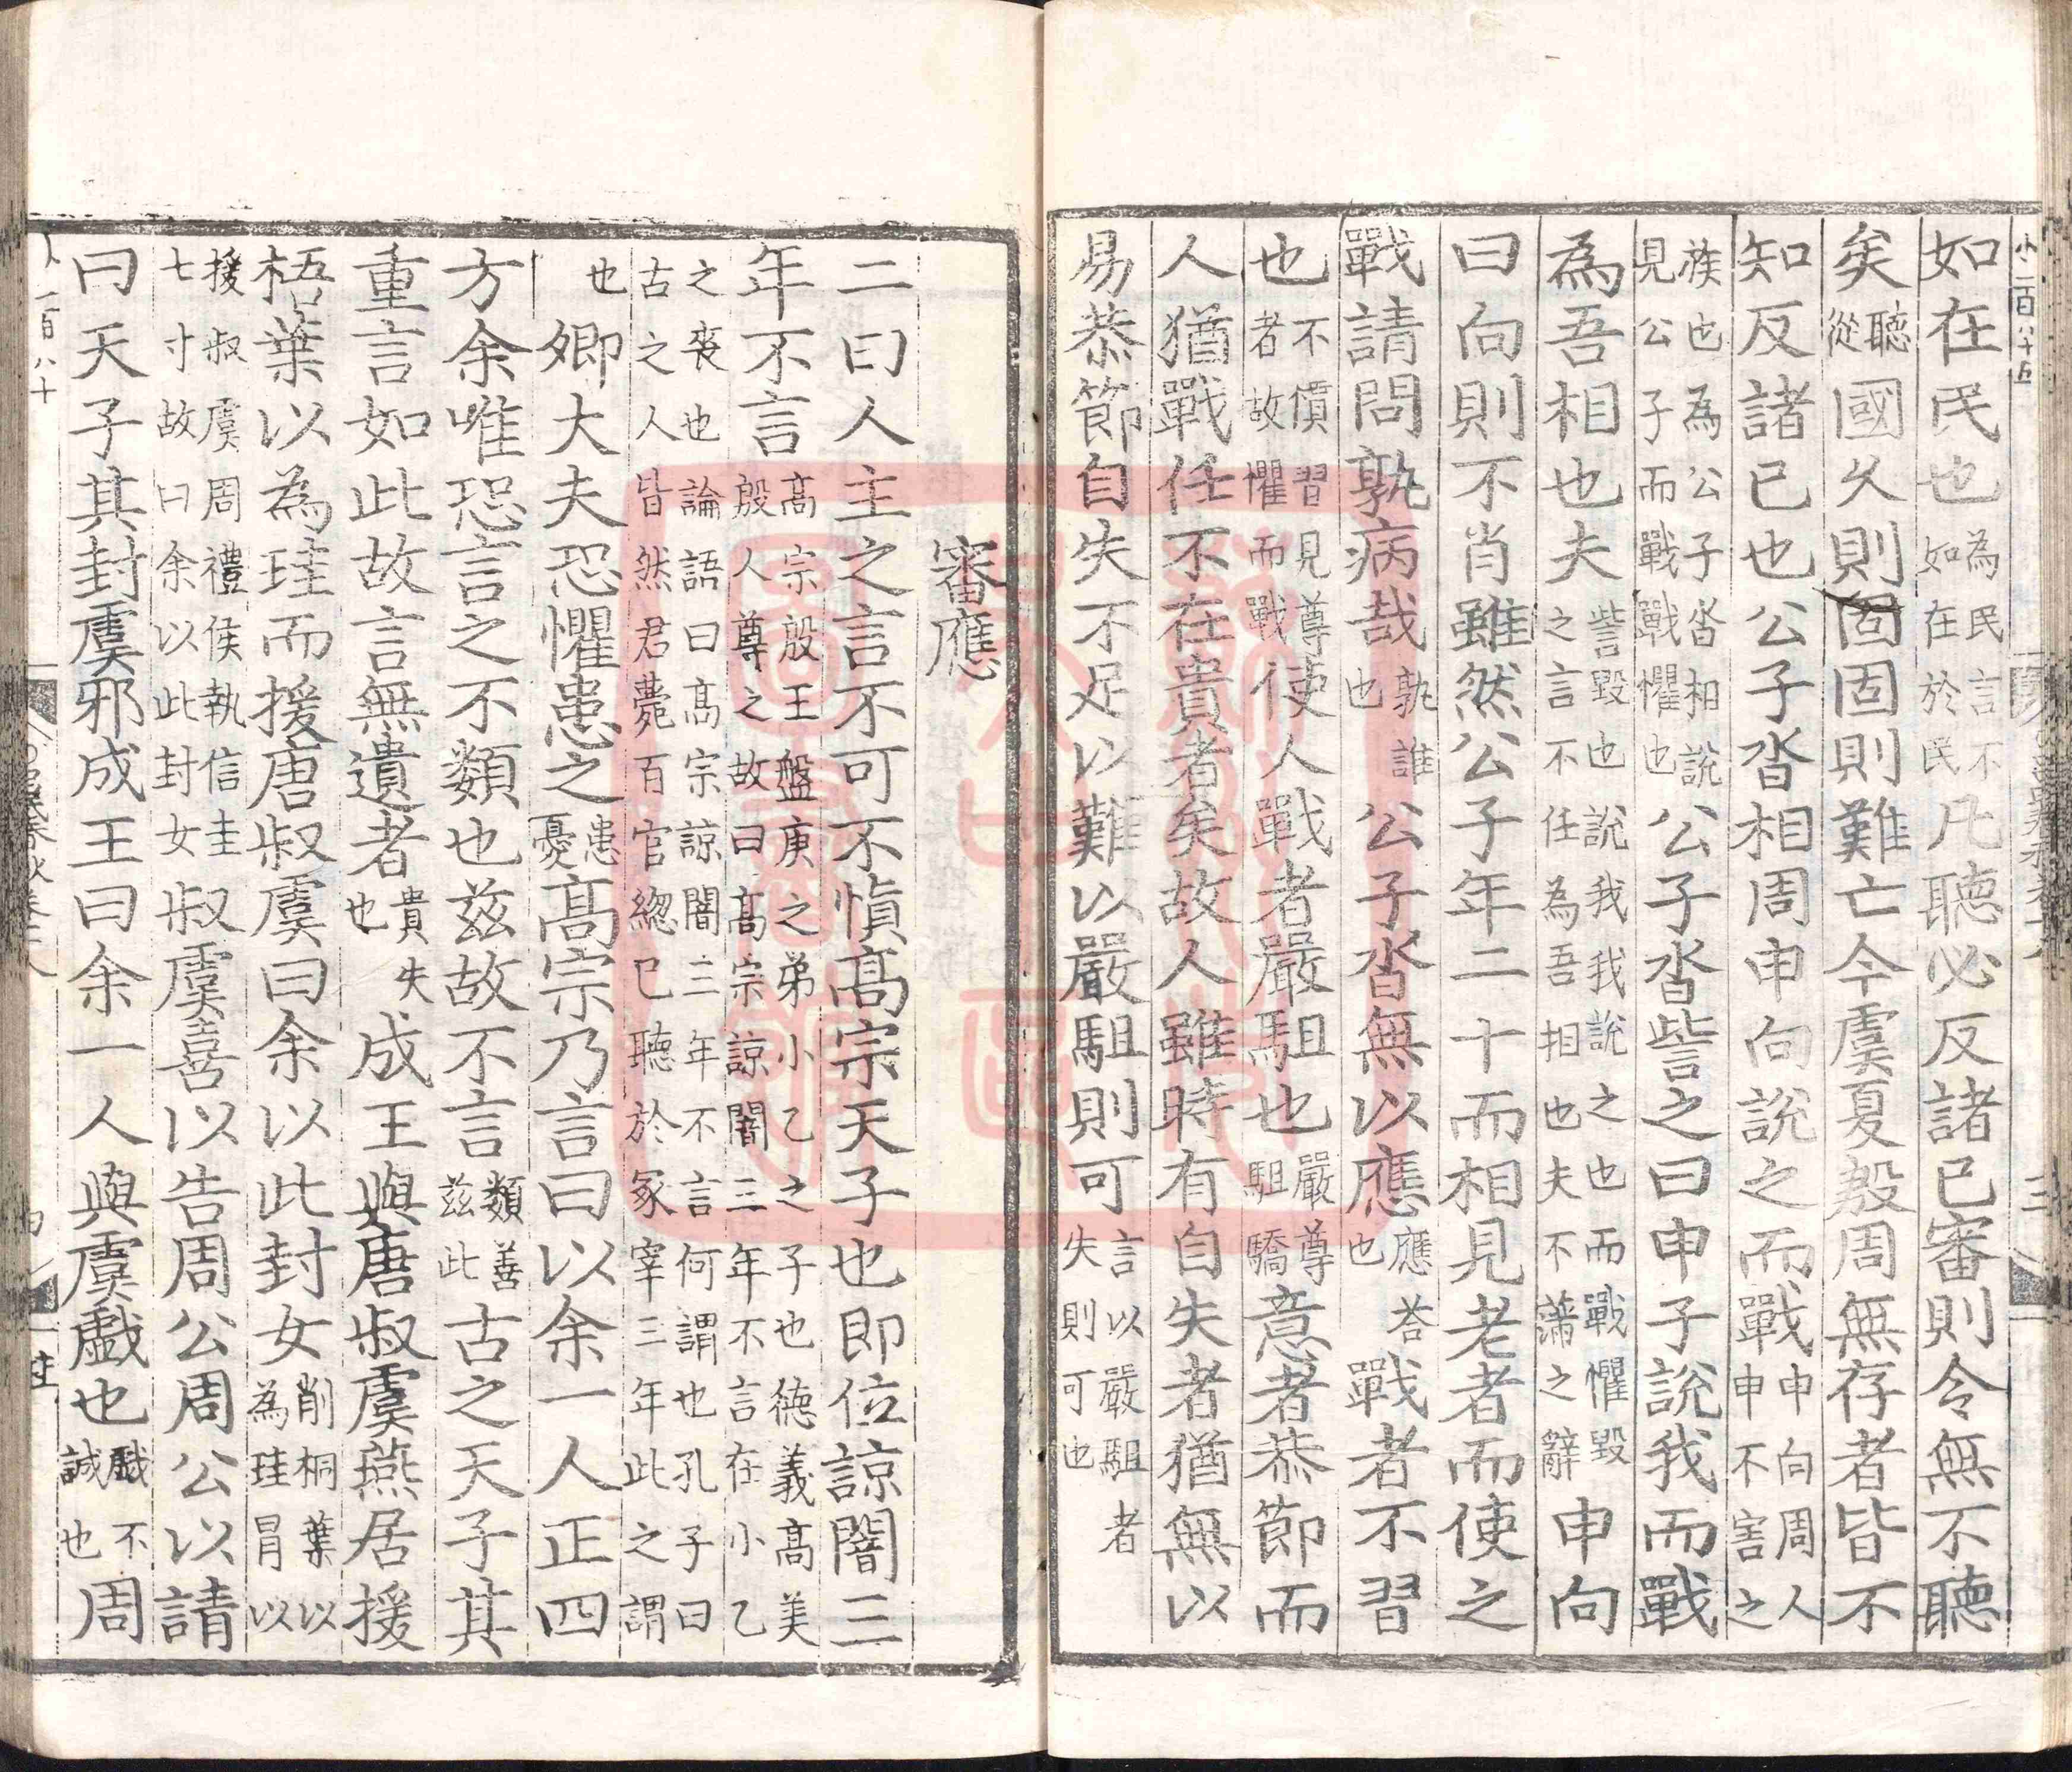 小一百八十五
如在民也為民言不如在於民凡聽必反諸己審則令無不聽
矣聽從國久則固固則難亡今虞夏殷周無存者皆不
知反諸己也公子沓相周申向說之而戰申向周人申不害之
族也為公子沓相說見公子而戰戰懼也公子沓訾之曰申子說我而戰
為吾相也夫訾毀也說我我說之也而戰懼毀之言不任為吾相也夫不滿之辭申向
曰向則不肖雖然公子年二十而相見老者而使之
戰請問孰病哉孰誰也公子沓無以應應荅也戰者不習
也不慣習見尊者故懼而戰使人戰者嚴駔也嚴尊駔驕意者恭節而
人猶戰任不在貴者矣故人雖時有自失者猶無以
易恭節自失不足以難以嚴駔則可言以嚴駔者失則可也
審應
二曰人主之言不可不慎高宗天子也即位諒闇三
年不言高宗殷王盤庚之弟小乙之子也德義高美殷人尊之故曰高宗諒闇三年不言在小乙
之喪也論語曰高宗諒闇三年不言何謂也孔子曰古之人皆然君薨百官緫己聽於冢宰三年此之謂
也卿大夫恐懼患之患憂高宗乃言曰以余一人正四
方余唯恐言之不類也茲故不言類善茲此古之天子其
重言如此故言無遺者貴失也成王與唐叔虞燕居援
梧葉以為珪而援唐叔虞曰余以此封女削桐葉以為珪冒以
援叔虞周禮侯執信圭七寸故曰余以此封女叔虞喜以告周公周公以請
曰天子其封虞邪成王曰余一人與虞戲也戲不誠也周